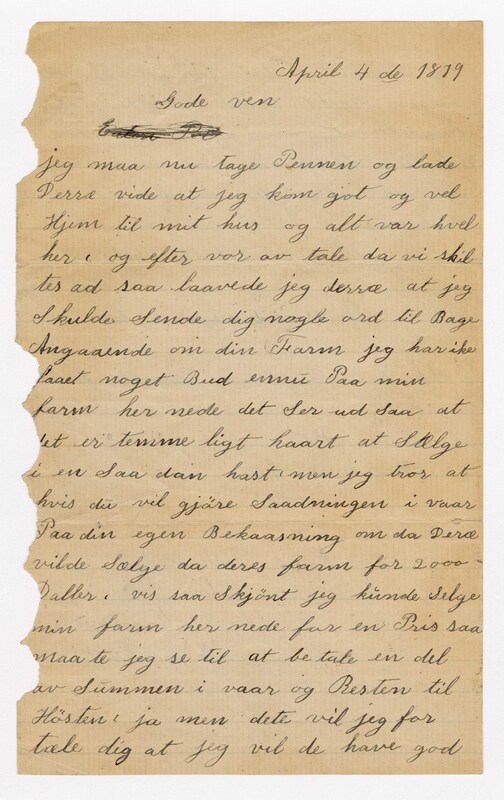 April 4 de 1879
Gode ven
jeg maa nu tage Pennen og lade
Derræ vide at jeg kom got og vel
Hjem til mit hus og alt var hvel
her, og efter vor av tale da vi skil
tes ad saa laavede jeg derræ at jeg
Skulde Sende dig nogle ord til Bage
Angaaende om din Farm jeg har ike
faaet noget Bud ennu Paa min
farm her nede det Ser ud Saa at
det er temme ligt haart at Sælge
i en Saa dan hast, men jeg tror at
hvis du vil gjöre Saadningen i vaar
Paa din egen Bekaasning om da Deræ
vilde Sælge da deres farm for 2000-
Daller, vis saa Skjönt jeg kunde Selge
min farm her nede for en Pris saa
maa te jeg se til at be tale en del
av Summen i vaar og Resten til
Hösten, ja men dete vil jeg for
tæle dig at jeg vil de have god